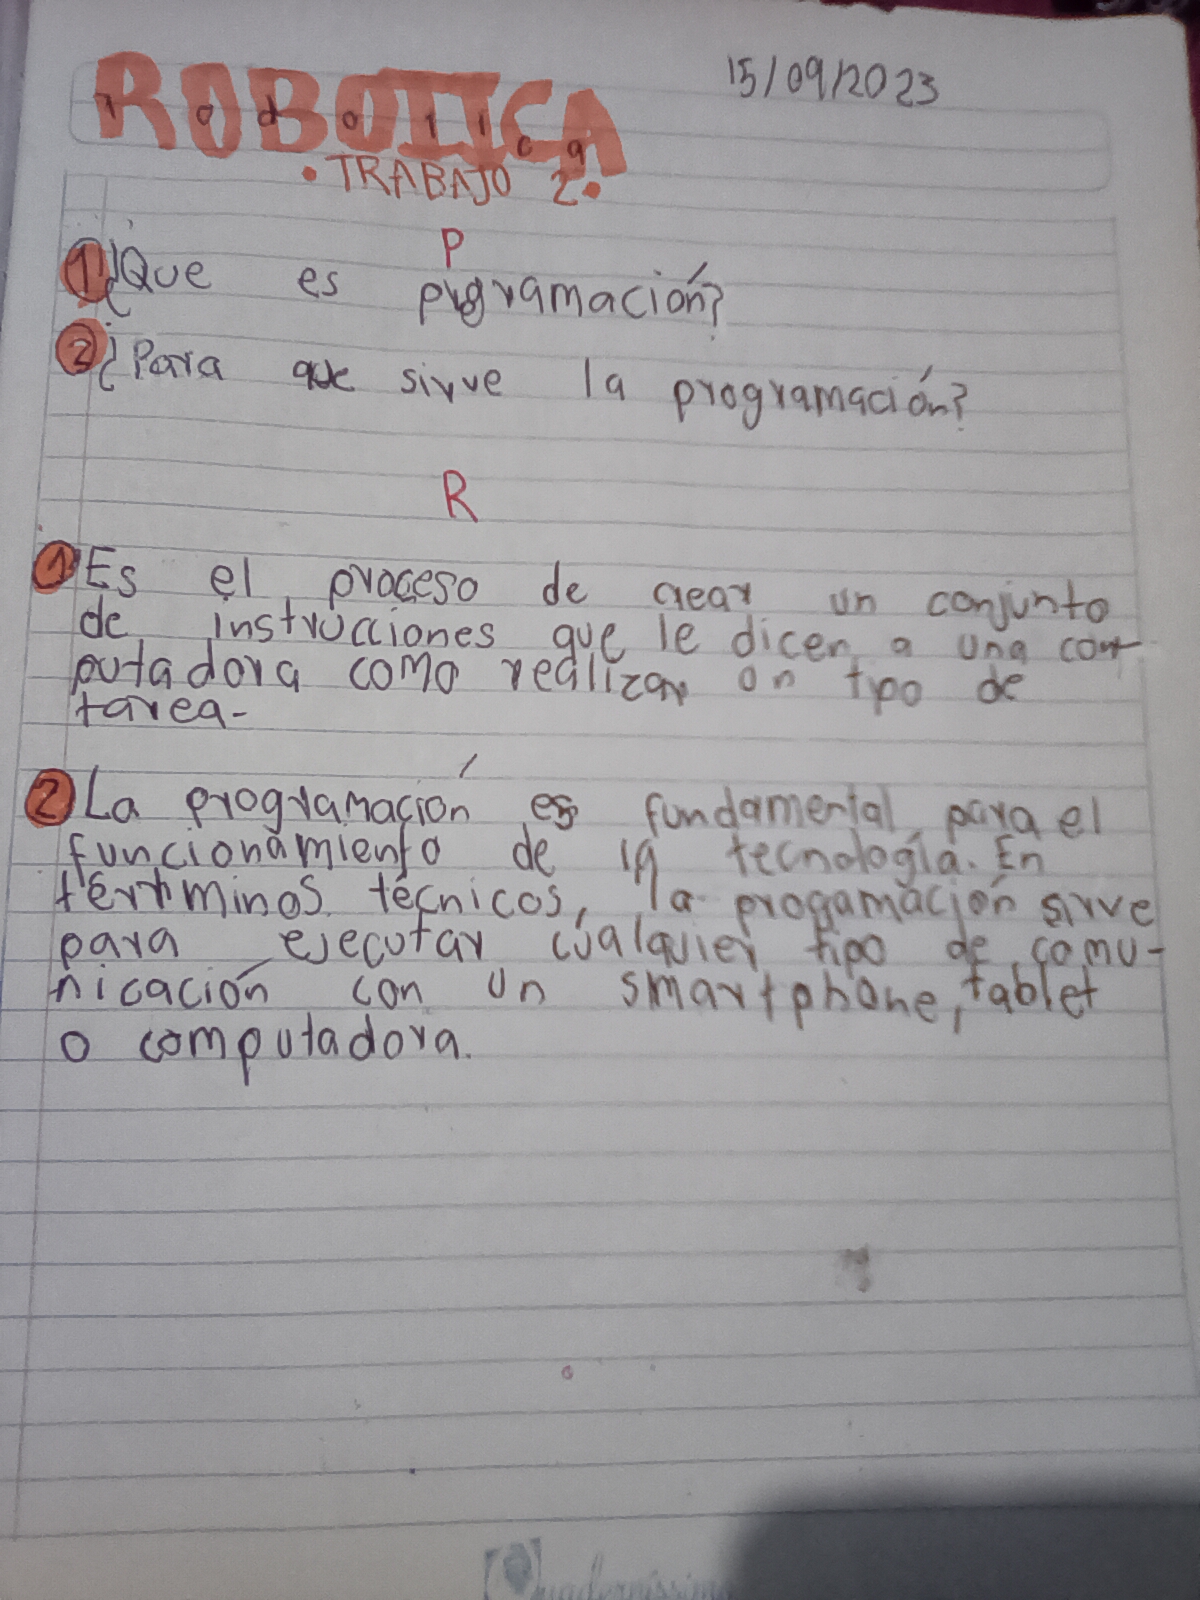 15/09/2023
ROBOTICA
robotica
• TRABAJO 2 •
P
1 ¿Que es programación?
2 ¿Para que sirve la programación?
R
1 Es el proceso de crear un conjunto
de instrucciones que le dicen a una com-
putadora como realizar un tipo de
tarea-
2 La programación es fundamental para el
funcionamiento de la tecnología. En
términos técnicos, la progamación sirve
para ejecutar cualquier tipo de comu-
nicación con un smartphone, tablet
o computadora.